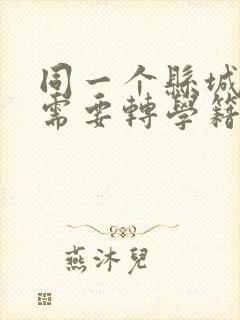 同一个縣城
需要轉學籍
燕沐兒